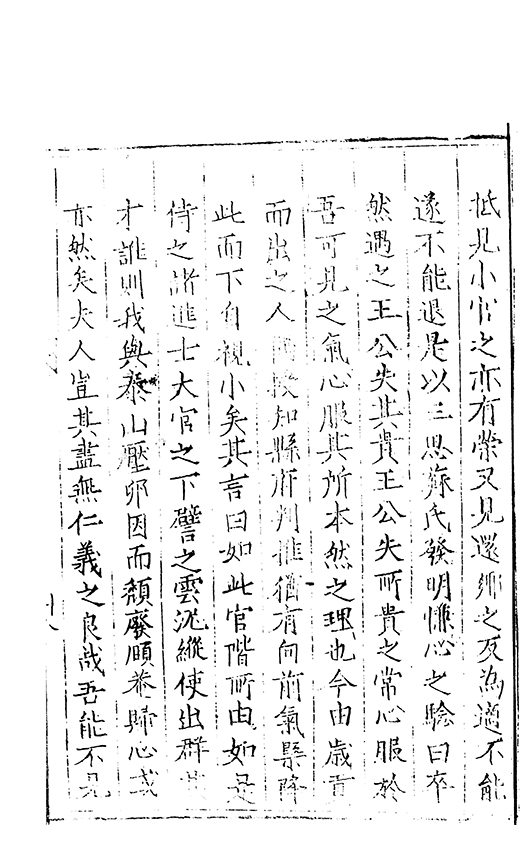 抵見小官之亦有榮又見還鄉之反為適不能
遂不能退是以三思蘇氏發明慊心之驗曰卒
然遇之王公失其貴王公失所貴之常心服於
吾可見之氣心服其所本然之理也今由歲貢
而出之人 授知縣府判推猶有向前氣 降
此而下自視小矣其言曰如此官階所由如是
侍之諸進士大官之下譬之雲泥縱使出群
才誰則我與泰山壓卵因而頹廢頤養歸心或
亦然矣夫人豈其盡無仁義之良哉吾能不見